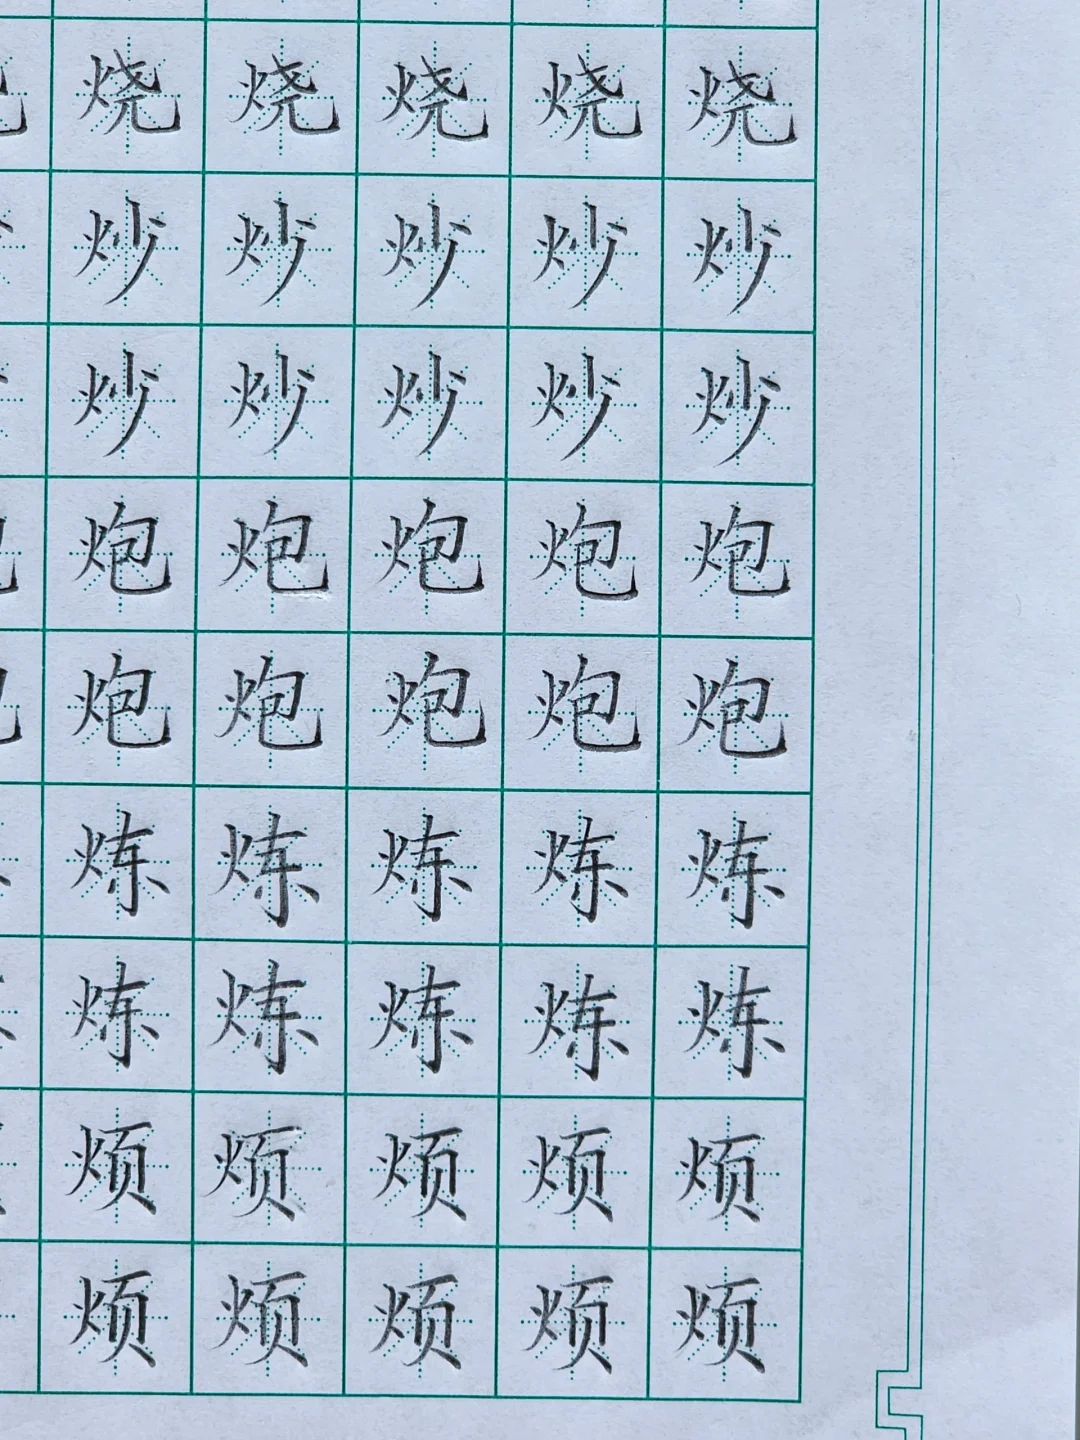 烧烧烧烧烧
炒炒炒炒炒
炒炒炒炒炒
炮炮炮炮炮
炮炮炮炮炮
炼炼炼炼炼
炼炼炼炼炼
烦烦烦烦烦
烦烦烦烦烦